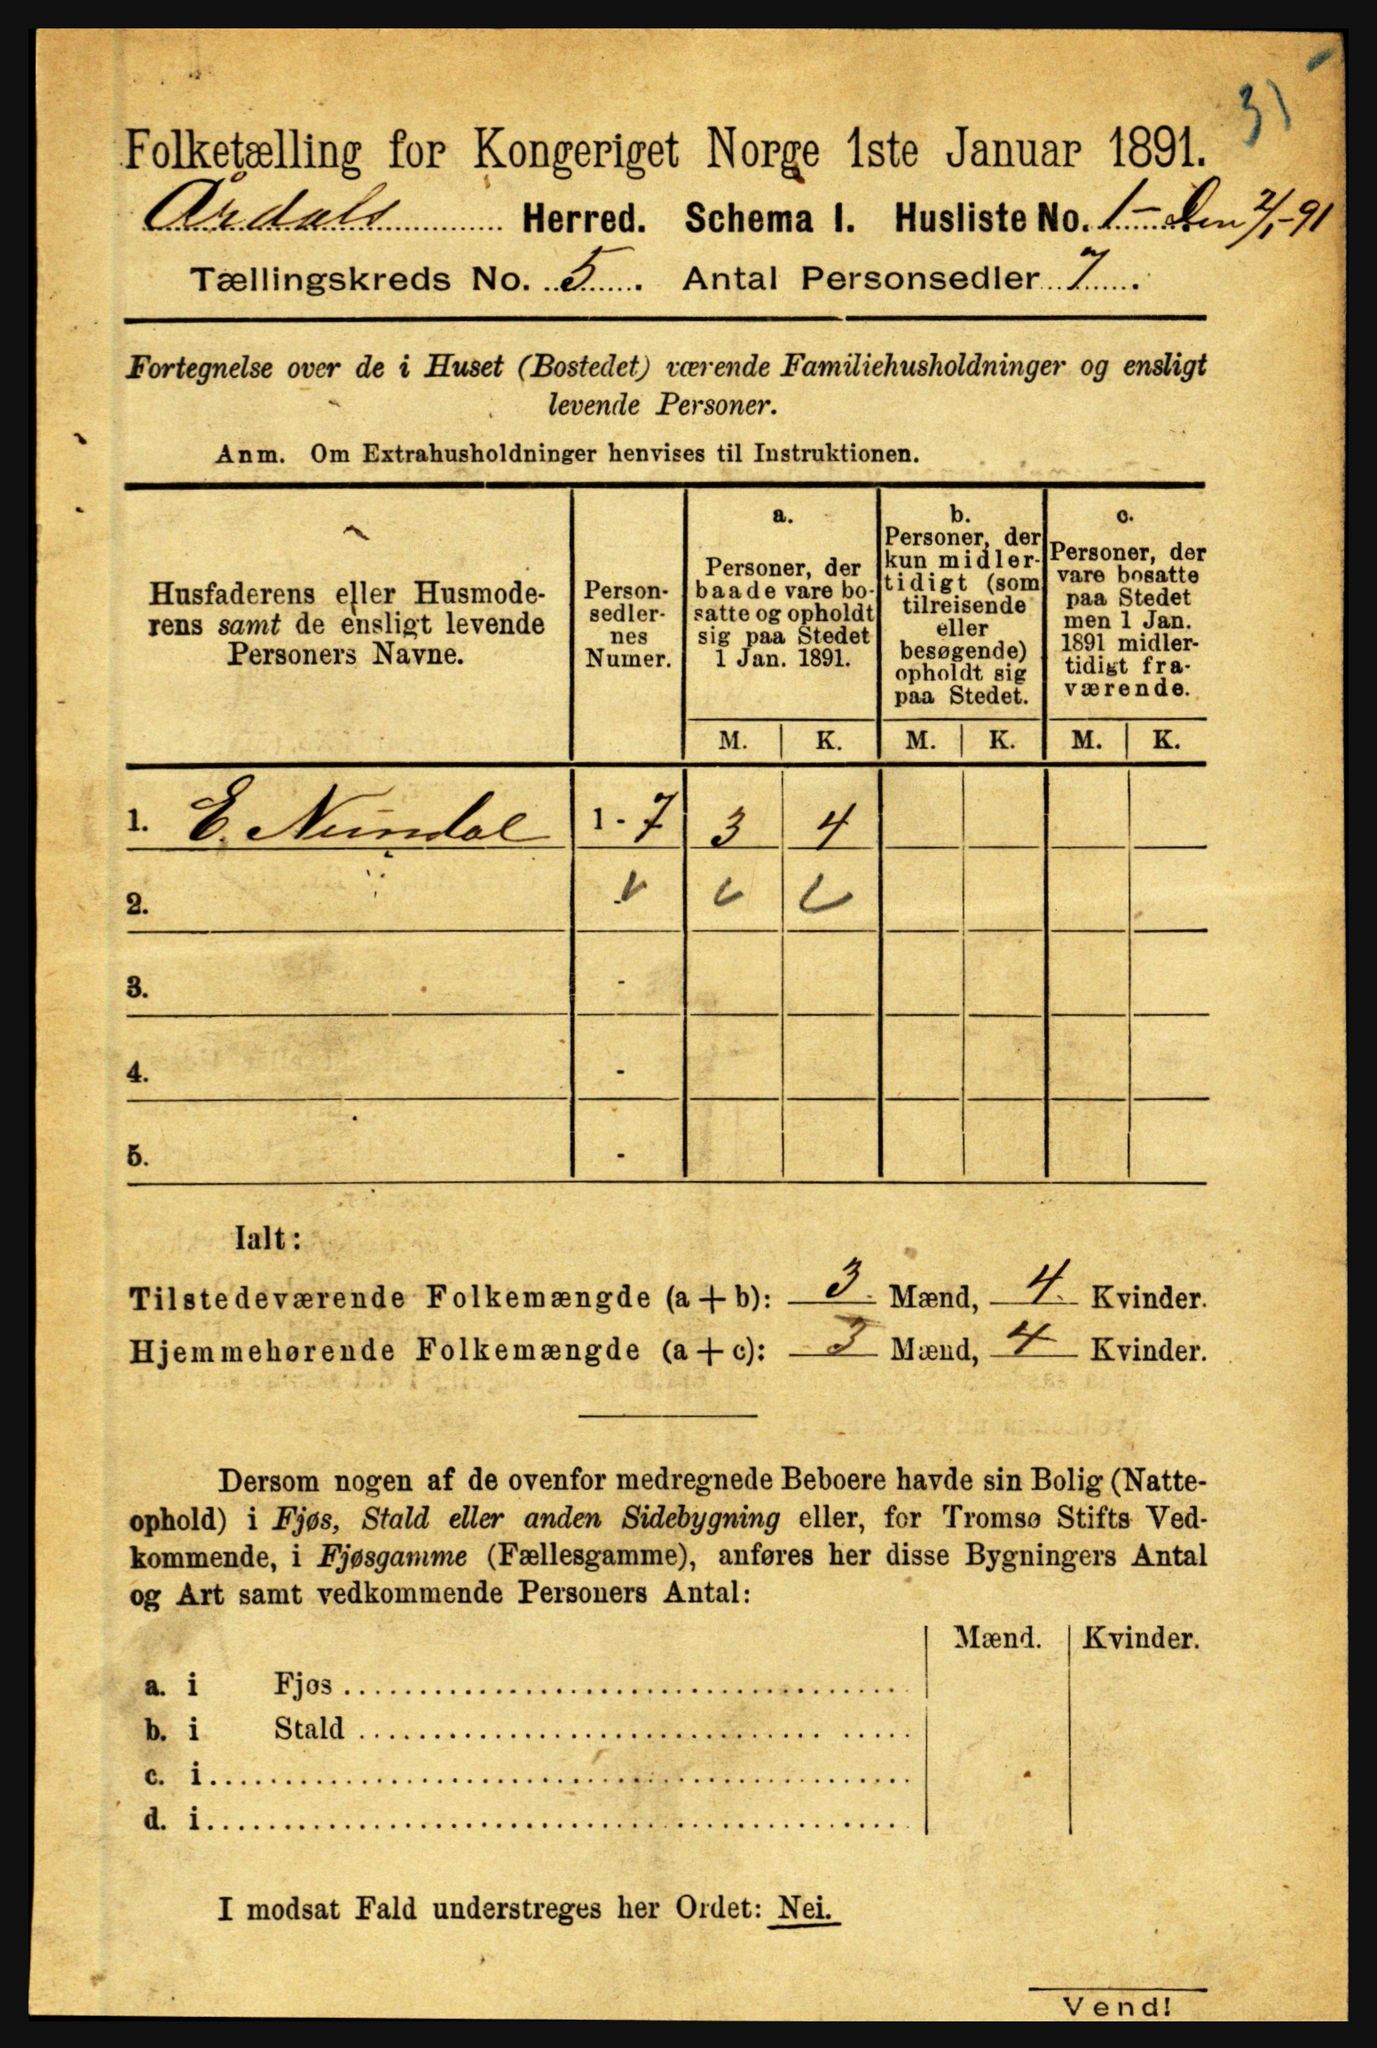 31
Folketælling for Kongeriget Norge 1ste Januar 1891.
Årdals Herred. Schema I. Husliste No. 1 - Den 2/1-91
Tællingskreds No. 5. Antal Personsedler 7.
Fortegnelse over de i Huset (Bostedet) værende Familiehusholdninger og ensligt
levende Personer.
Anm. Om Extrahusholdninger henvises til Instruktionen.
Husfaderens eller Husmode-
rens samt de ensligt levende
Personers Navne.
Person-
sedler-
nes
Numer.
a.
Personer, der
baade vare bo-
satte og opholdt
sig paa Stedet
1 Jan. 1891.
b.
Personer, der
kun midler-
tidigt (som
tilreisende
eller
besøgende)
opholdt sig
paa Stedet.
c.
Personer, der
vare bosatte
paa Stedet
men 1 Jan.
1891 midler-
tidigt fra-
værende.
M. K. M. K. M. K.
1. E. Nundal 1 - 7 3 4
2.
3. -
4. -
5. -
Ialt:
Tilstedeværende Folkemængde (a + b): 3 Mænd, 4 Kvinder.
Hjemmehørende Folkemængde (a + c): 3 Mænd, 4 Kvinder.
Dersom nogen af de ovenfor medregnede Beboere havde sin Bolig (Natte-
ophold) i Fjøs, Stald eller anden Sidebygning eller, for Tromsø Stifts Ved-
kommende, i Fjøsgamme (Fællesgamme), anføres her disse Bygningers Antal
og Art samt vedkommende Personers Antal:
Mænd. Kvinder.
a. i Fjøs
b. i Stald
c. i
d. i
I modsat Fald understreges her Ordet: Nei.
Vend!